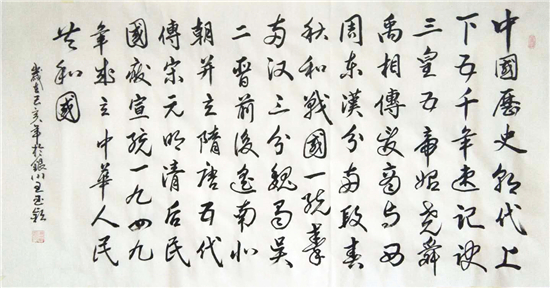 中國歷史朝代上
下五千年速记诀
三皇五帝始堯舜
禹相傳夏商与西
周东漢分两段春
秋和戰國一統秦
两汉三分魏蜀吴
二晋前後延南北
朝并立隋唐五代
傳宋元明清后民
國廢宣統一九四九
年成立中華人民
共和國
歲在己亥年於銀川王玉